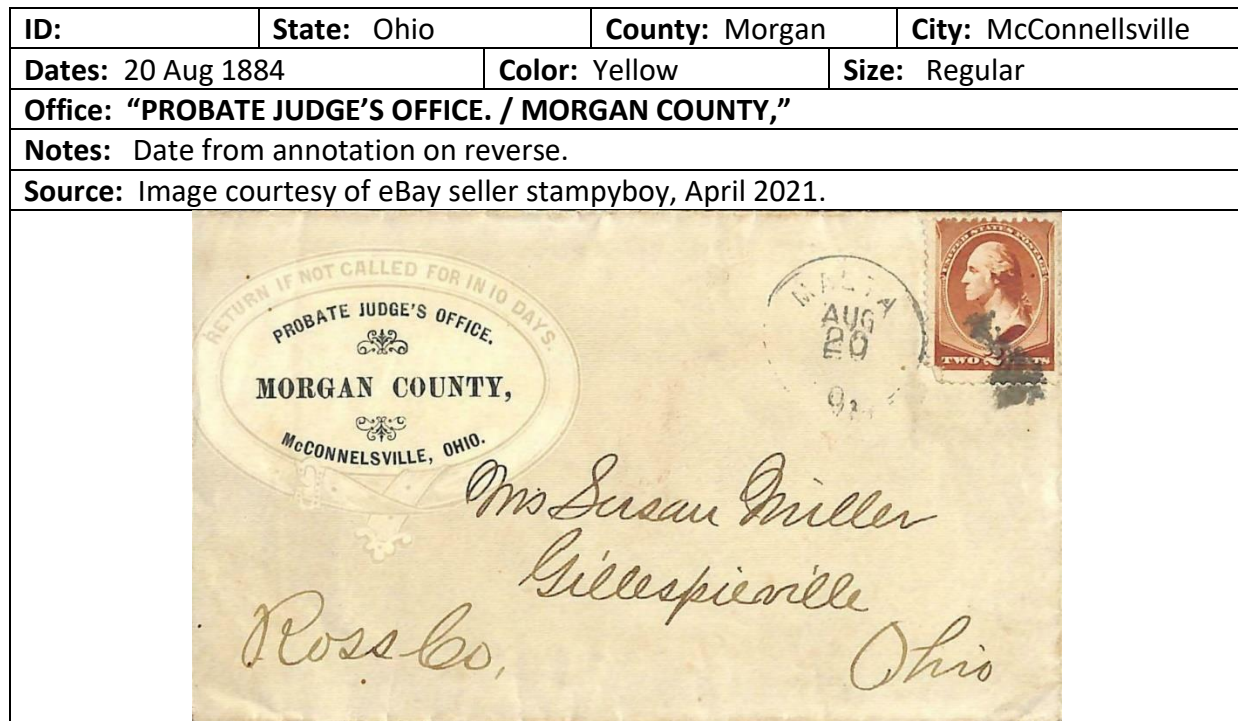 ID: State: Ohio County: Morgan City: McConnellsville
Dates: 20 Aug 1884 Color: Yellow Size: Regular
Office: “PROBATE JUDGE’S OFFICE. / MORGAN COUNTY,”
Notes: Date from annotation on reverse.
Source: Image courtesy of eBay seller stampyboy, April 2021.
RETURN IF NOT CALLED FOR IN 10 DAYS.
PROBATE JUDGE'S OFFICE.
MORGAN COUNTY,
McCONNELSVILLE, OHIO.
MALTA
AUG
20
UNITED STATES POSTAGE
TWO CENTS
Susan Miller
Gillespieville
Ross Co,
Ohio